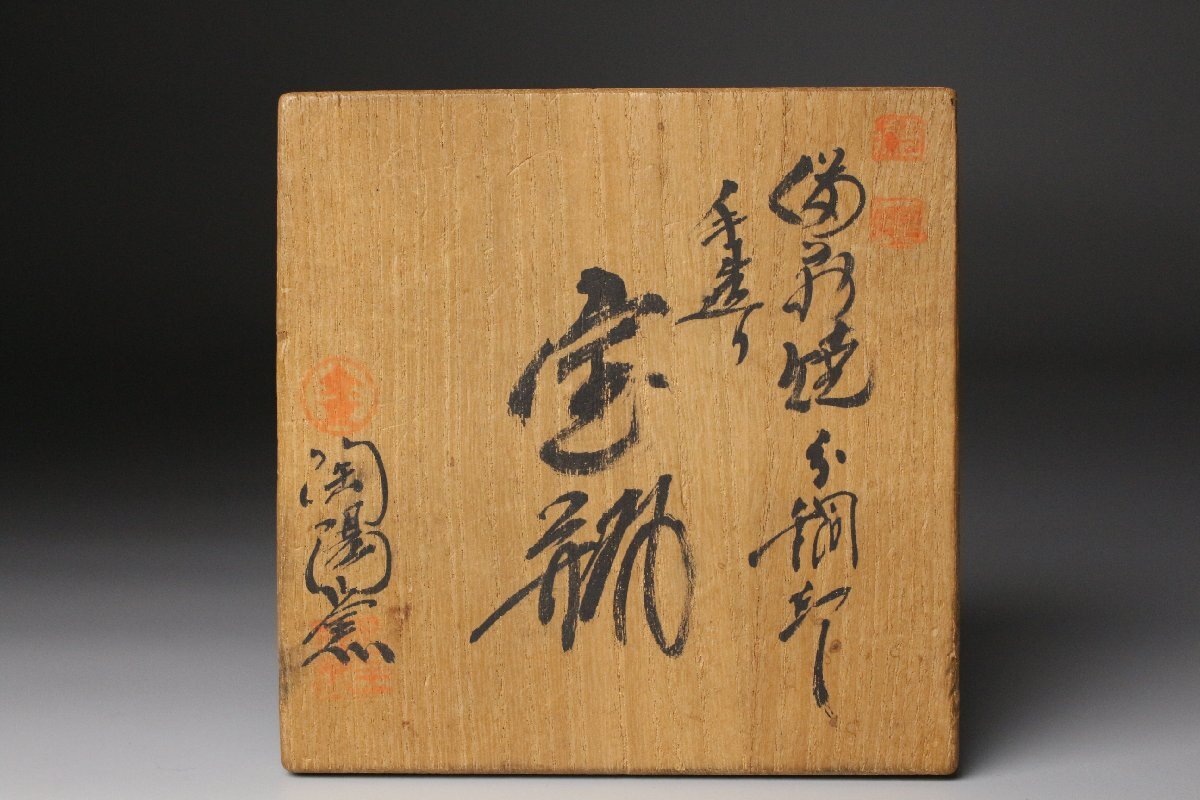 備前焼 分銅印
手造り
宝瓶
陶陽窯